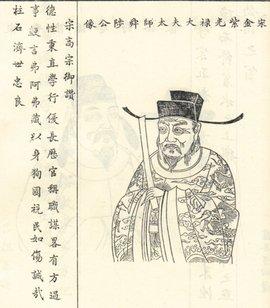 宋金紫光祿大夫太師舜陸公像
宗高宗御讚
德性秉直學行優長歷官稱職謀畧有方過
事諫言弗阿弗藏以身狥國視民如傷誠哉
柱石濟世忠良